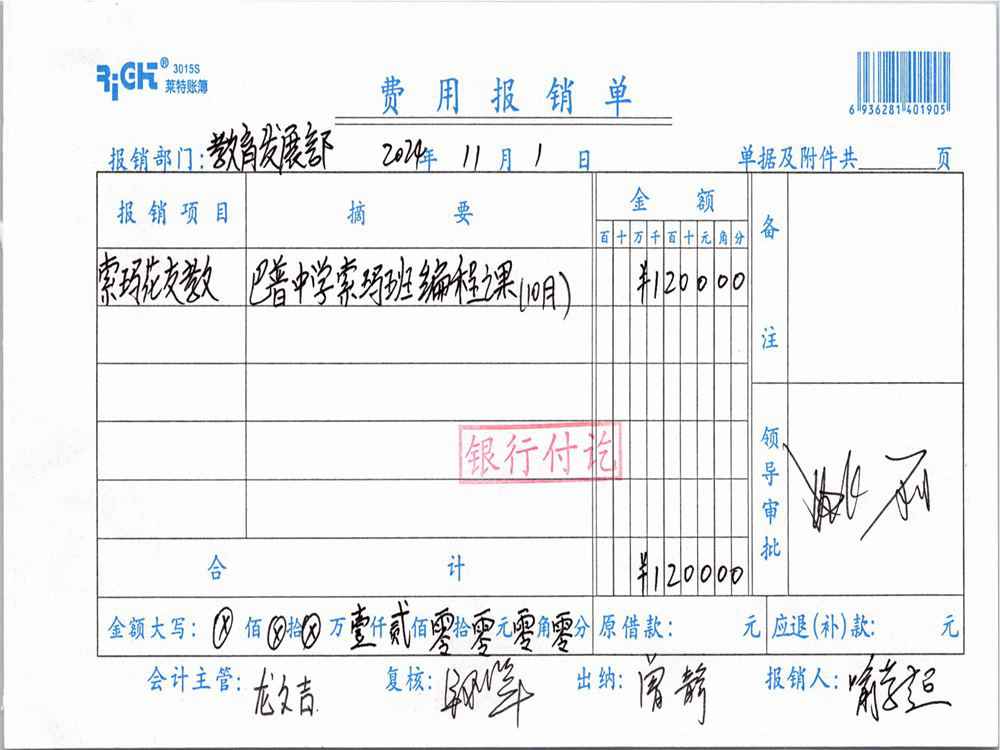 RiGHT® 3015S
莱特账簿
费用报销单
6 936281 401905
报销部门:教育发展部 2024年 11月 1日 单据及附件共 页
报销项目 摘要 金额 备注
百十万千百十元角分
索玛花支教 巴普中学索玛班编程课(10月) ¥120000
银行付讫
领导审批
合计 ¥120000
金额大写:ⓧ佰ⓧ拾ⓧ万壹仟贰佰零拾零元零角零分 原借款: 元 应退(补)款: 元
会计主管:龙文吉 复核: 出纳:曾静 报销人:喻孝超